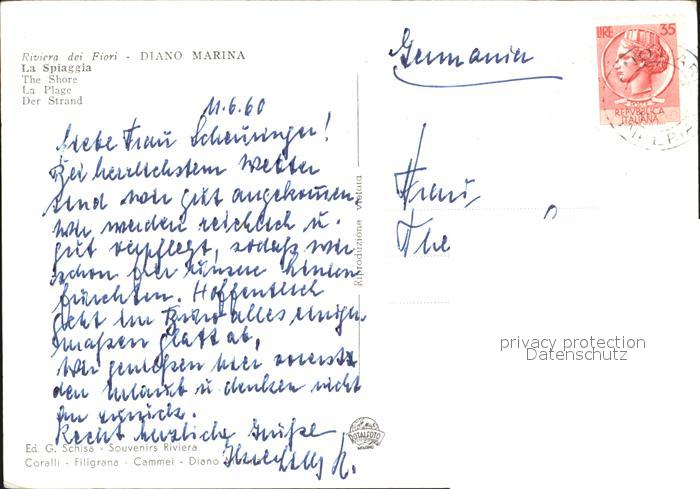 Riviera dei Fiori - DIANO MARINA
La Spiaggia
The Shore
La Plage
Der Strand
11.6.60
Liebe Frau Scheuringer!
Bei herrlichstem Wetter
sind wir gut angekommen.
Wir werden reichlich u.
gut verpflegt, sodaß wir
schon für unsere Linien
fürchten. Hoffentlich
geht im Büro alles einiger-
maßen glatt ab.
Wir genießen hier vorerst
den Urlaub u. denken nicht
an zurück.
Recht herzliche Grüße
Ed. G. Schisa - Souvenirs Riviera
Coralli - Filigrana - Cammei - Diano
Riproduzione vietata
ROTALFOTO
MILANO
Germania
LIRE 35
REPVBBLICA
ITALIANA
Frau
The
privacy protection
Datenschutz